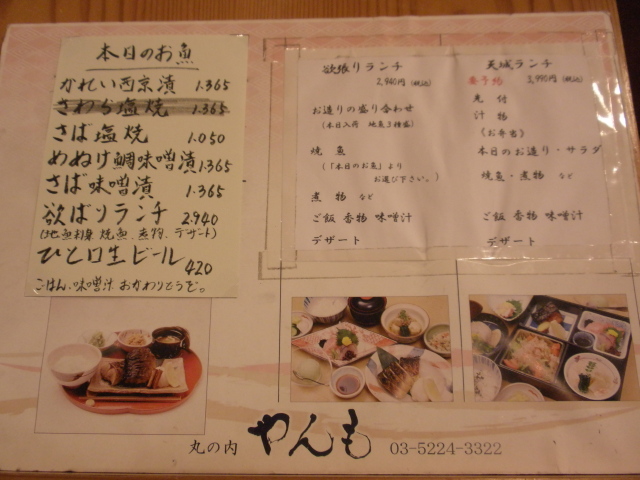 本日のお魚
かれい西京漬 1.365
さわら塩焼 1.365
さば塩焼 1.050
めぬけ鯛味噌漬 1.365
さば味噌漬 1.365
欲ばりランチ 2.940
焼魚、煮物、デザート)
ひと口生ビール 420
ごはん、味噌汁おかわりどうぞ。
欲張りランチ
2,940円(税込)
お造りの盛り合わせ
(本日入荷 地魚3種盛)
焼魚
(「本日のお魚」より
お選び下さい。)
煮物 など
ご飯 香物 味噌汁
デザート
天城ランチ
要予約 3,990円(税込)
先付
汁物
《お弁当》
本日のお造り・サラダ
焼魚・煮物 など
ご飯 香物 味噌汁
デザート
丸の内 やんも 03-5224-3322